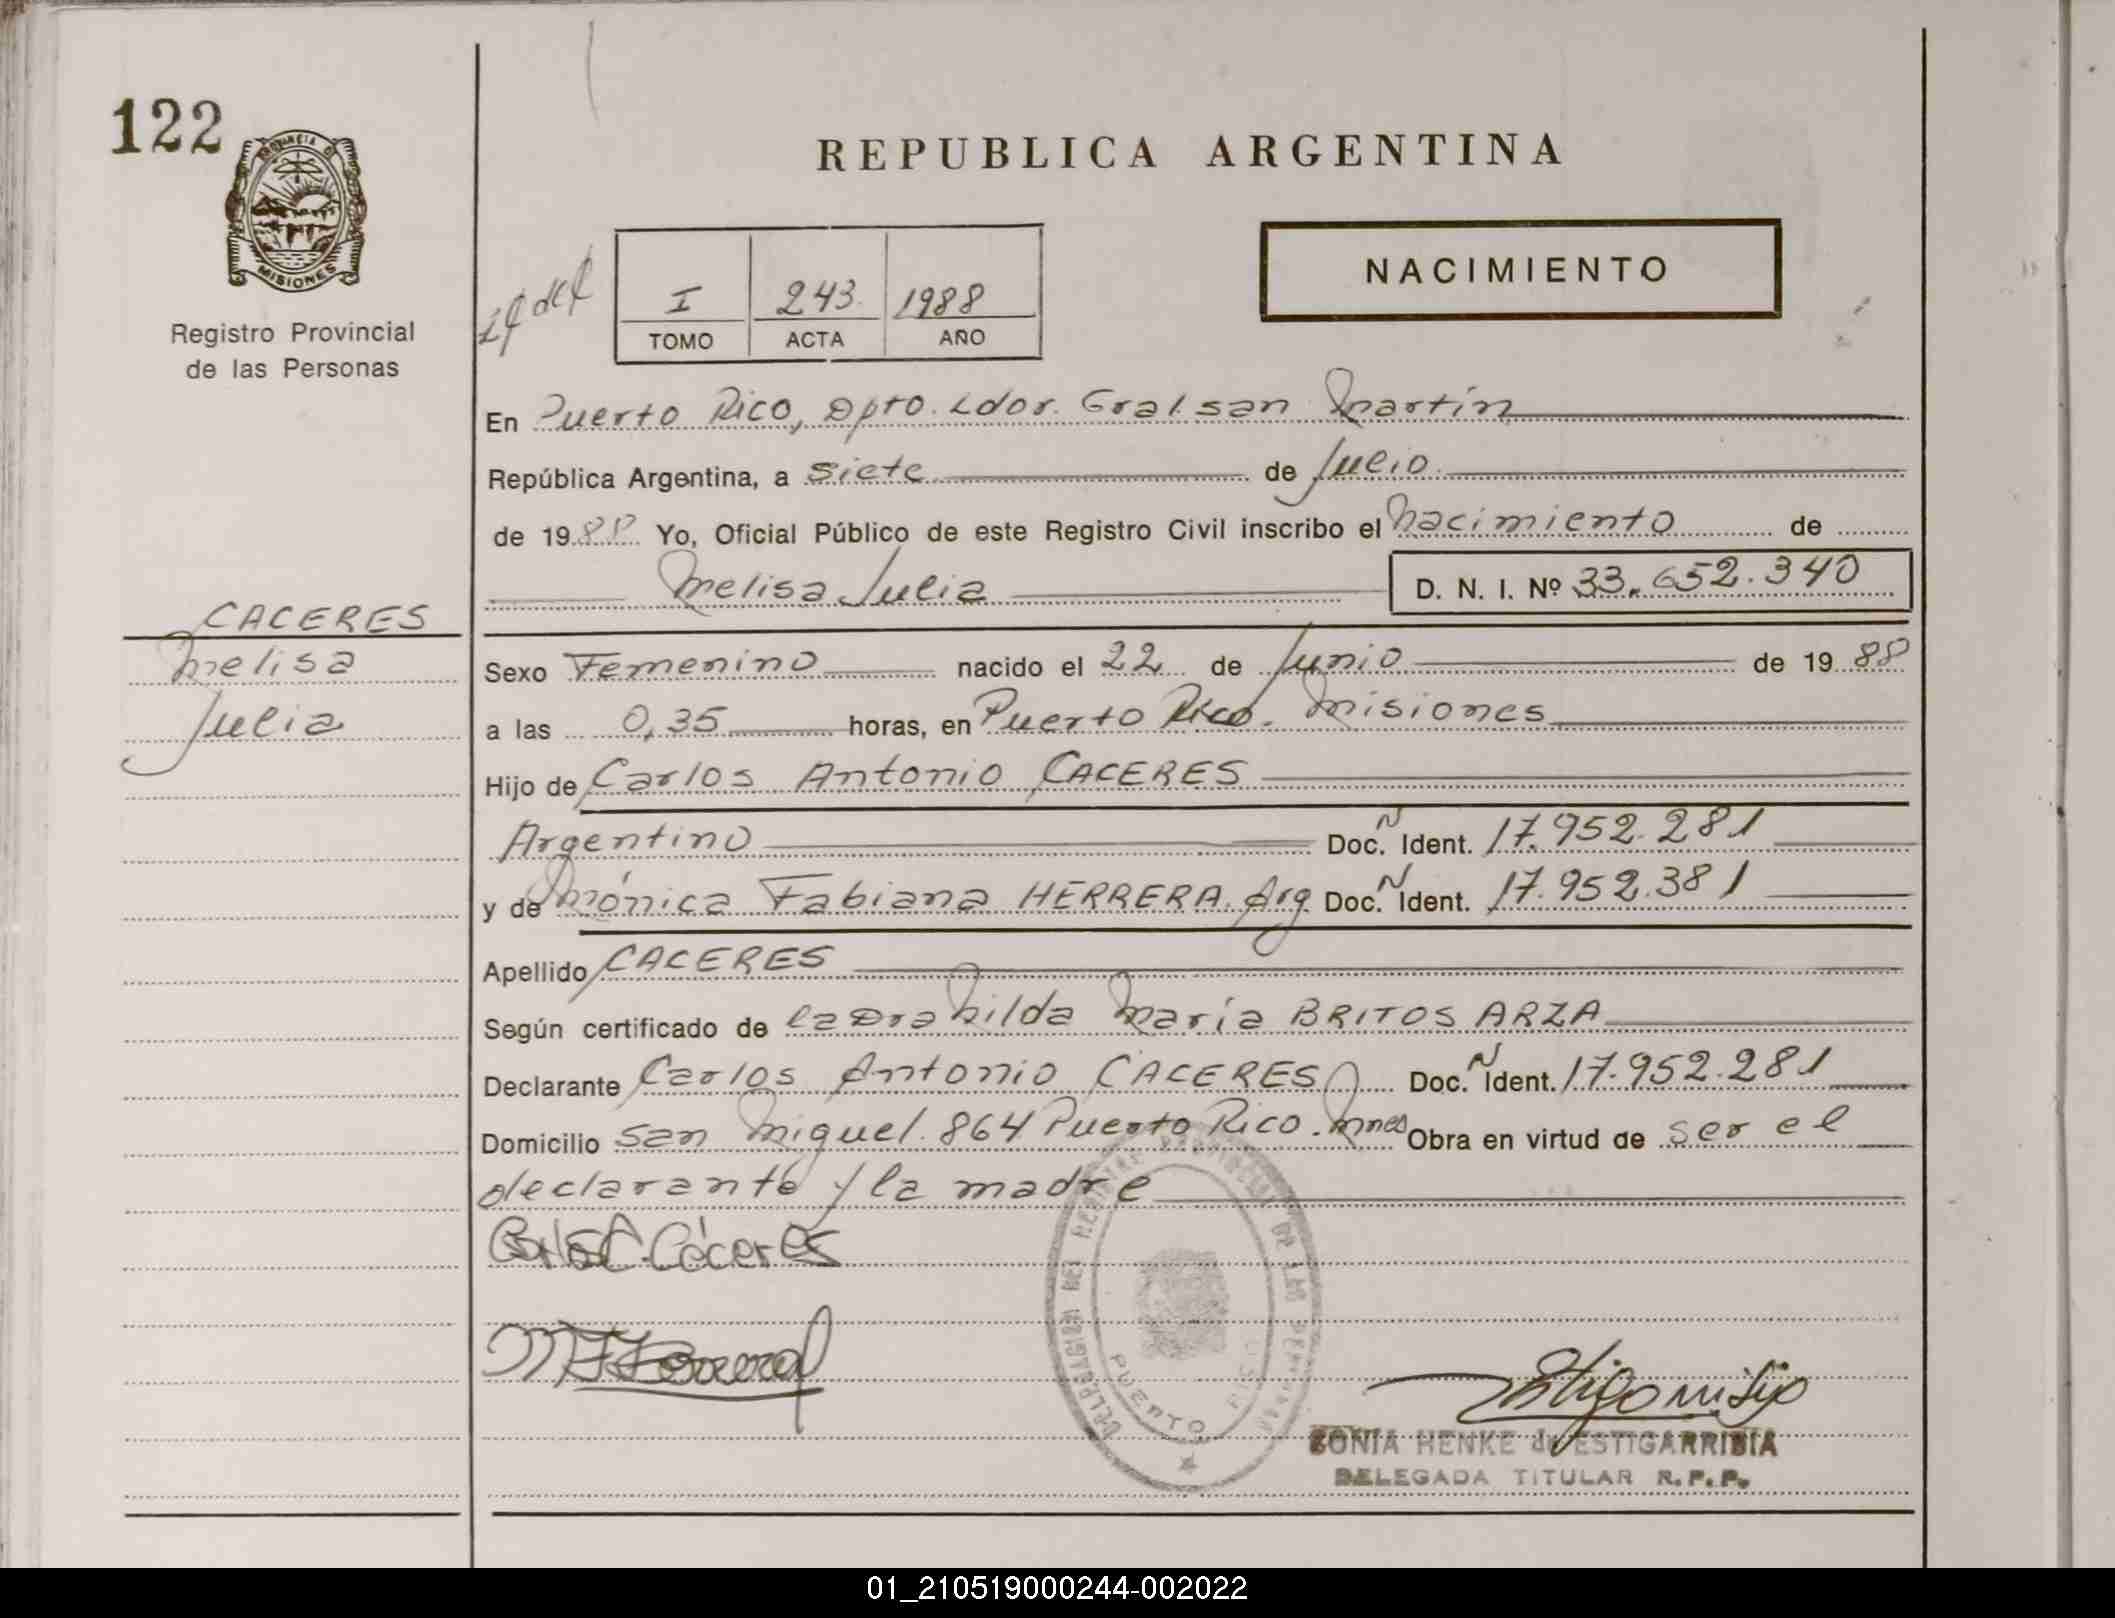 122
PROVINCIA DE
MISIONES
Registro Provincial
de las Personas
REPUBLICA ARGENTINA
NACIMIENTO
I 243 1988
TOMO ACTA AÑO
En Puerto Rico, Dpto. Ldor. Gral. San Martín
República Argentina, a siete de Julio
de 1988 Yo, Oficial Público de este Registro Civil inscribo el Nacimiento de
Melisa Julia D. N. I. Nº 33.652.340
CACERES
Melisa
Julia
Sexo Femenino nacido el 22 de Junio de 1988
a las 0,35 horas, en Puerto Rico. Misiones
Hijo de Carlos Antonio CACERES
Argentino Doc. N Ident. 17.952.281
y de Mónica Fabiana HERRERA. Arg Doc. N Ident. 17.952.381
Apellido CACERES
Según certificado de la Dra Hilda María BRITOS ARZA
Declarante Carlos Antonio CACERES Doc. N Ident. 17.952.281
Domicilio San Miguel. 864 Puerto Rico. Mnes Obra en virtud de ser el
declarante y la madre
Cáceres
DELEGACION DEL REGISTRO PROVINCIAL DE LAS PERSONAS
PUERTO RICO
SONIA HENKE de ESTIGARRIBIA
DELEGADA TITULAR R.P.P.
01_210519000244-002022